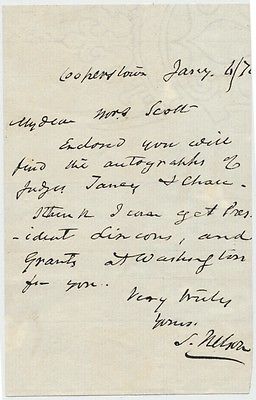 Cooperstown Jany. 6/70
My dear Mrs Scott
Enclosed you will
find the autographs of
Judges Taney & Chase -
I think I can get Pres-
ident Lincons, and
Grants at Washington
for you.
Very truly
Yours.
S. Nelson